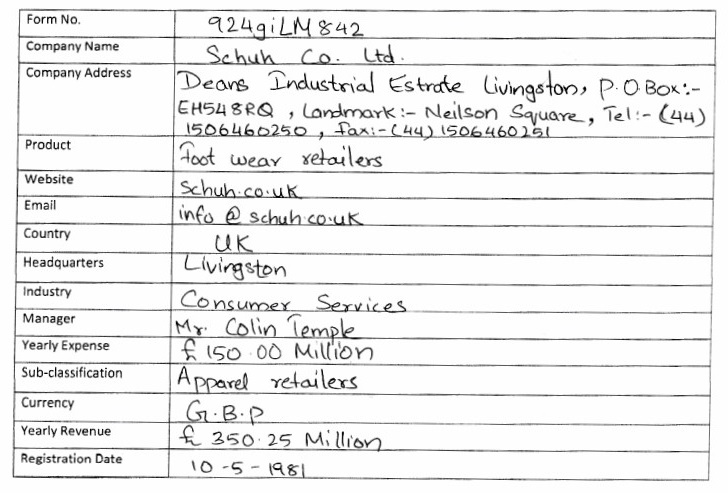 Form No. 924giLM842
Company Name Schuh Co. Ltd.
Company Address Deans Industrial Estrate Livingston, P.O.Box:-
EH548RQ, Landmark:- Neilson Square, Tel:- (44)
1506460250, fax:- (44) 1506460251
Product foot wear retailers
Website schuh.co.uk
Email info @ schuh.co.uk
Country UK
Headquarters Livingston
Industry Consumer Services
Manager Mr. Colin Temple
Yearly Expense £ 150.00 Million
Sub-classification Apparel retailers
Currency G.B.P
Yearly Revenue £ 350.25 Million
Registration Date 10-5-1981